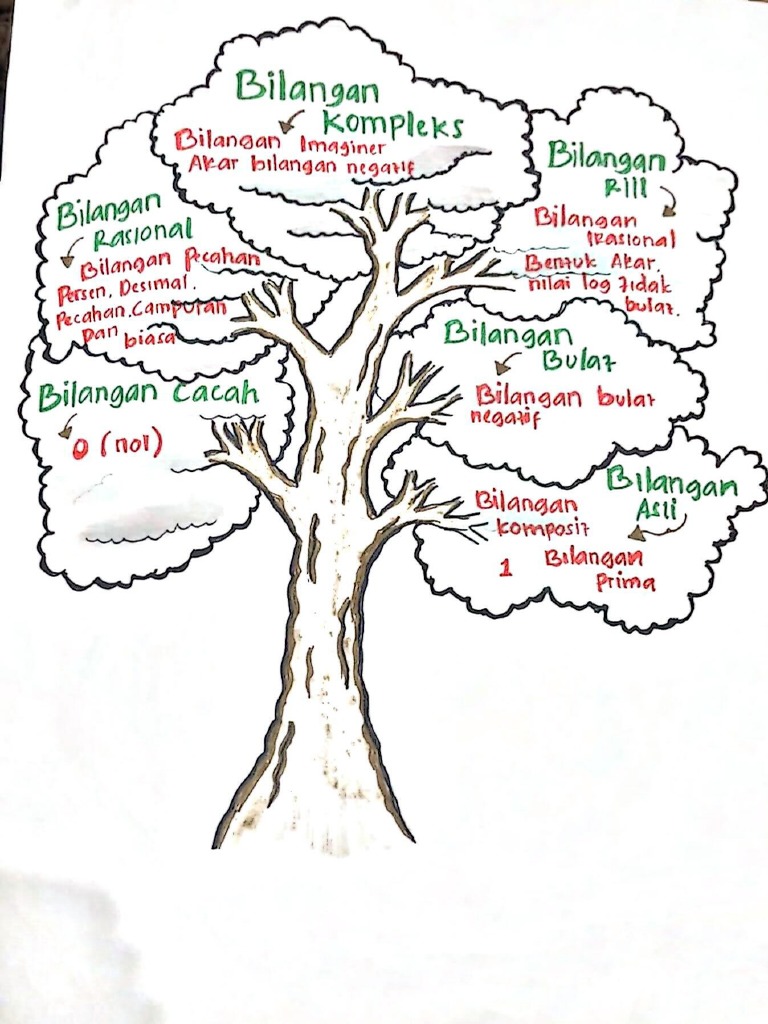 Bilangan
Kompleks
Bilangan Imaginer
Akar bilangan negatif
Bilangan
Rasional
Bilangan Pecahan
Persen, Desimal,
Pecahan Campuran
Dan biasa
Bilangan
Riil
Bilangan
Irasional
Bentuk Akar,
nilai log tidak
bulat.
Bilangan
Bulat
Bilangan bulat
negatif
Bilangan Cacah
0 (nol)
Bilangan
Asli
Bilangan
Komposit
1 Bilangan
Prima